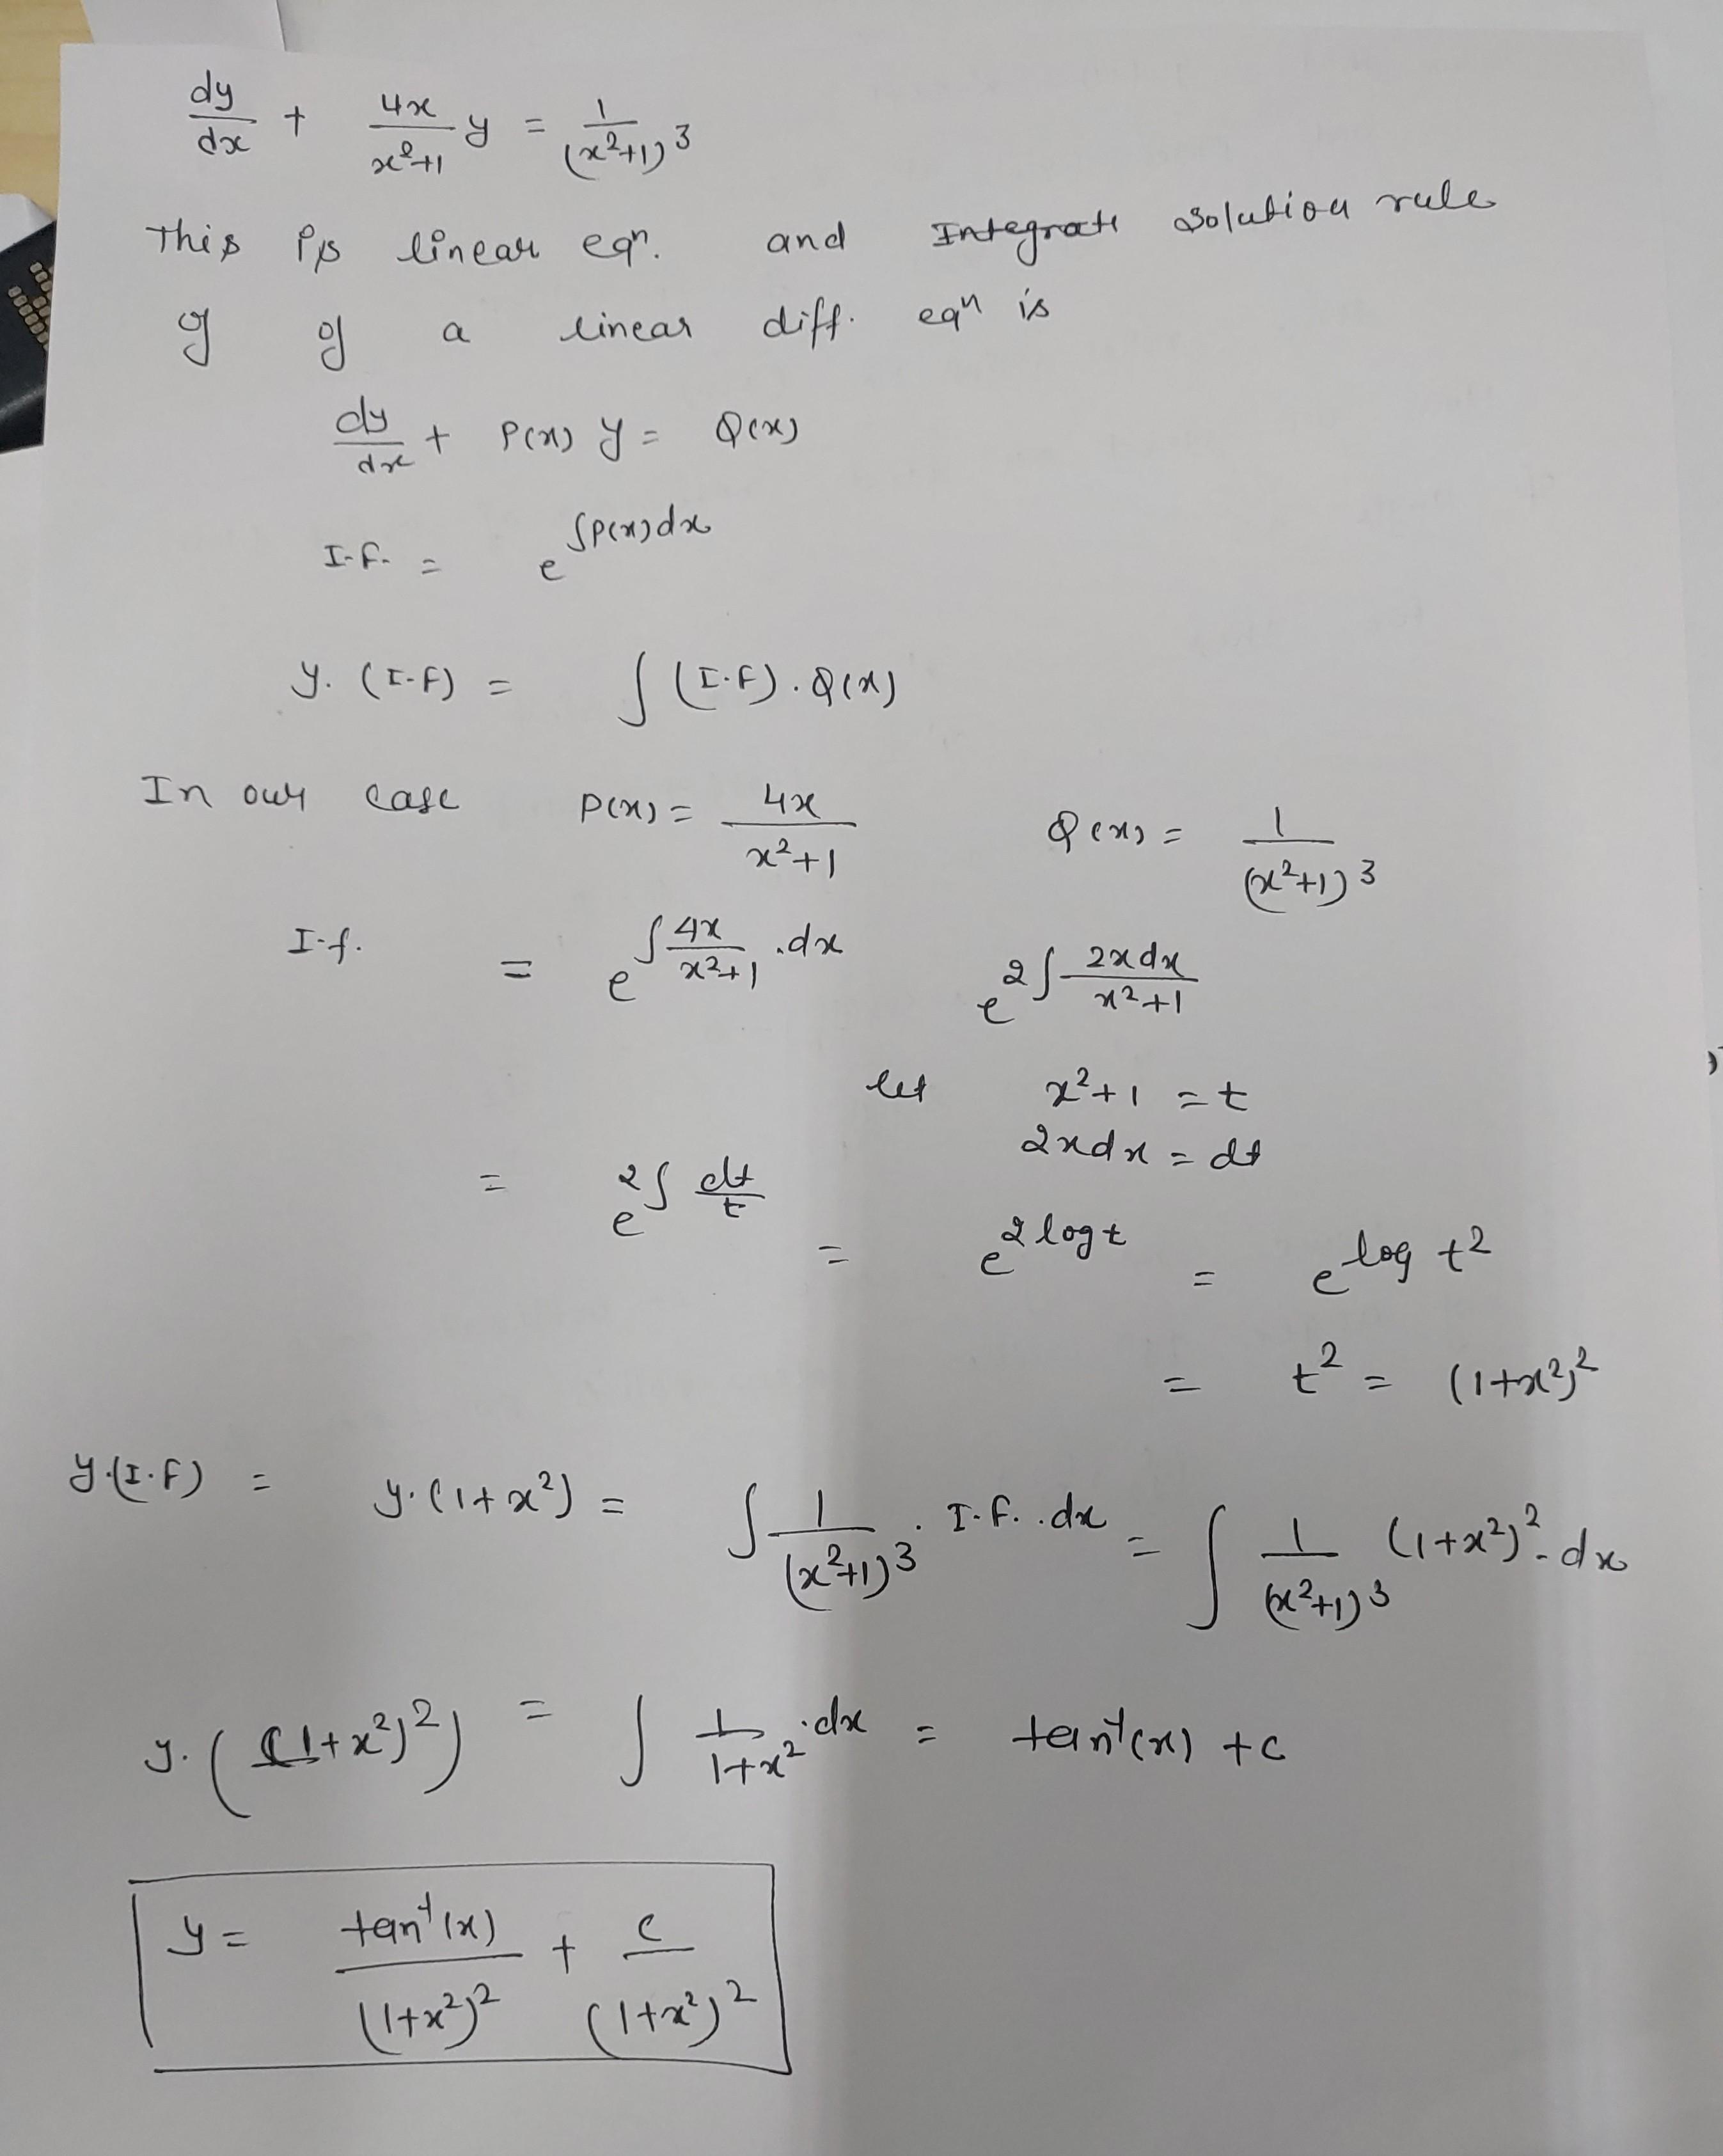 dy/dx + 4x/(x²+1) y = 1/(x²+1)³
This is linear eqⁿ. and Integrate solution rule
of of a linear diff. eqⁿ is
dy/dx + P(x) y = Q(x)
I.F. = e^∫P(x)dx
y. (I.F) = ∫ (I.F). Q(x)
In our case P(x) = 4x/(x²+1) Q(x) = 1/(x²+1)³
I.f. = e^∫ 4x/(x²+1) .dx e^2∫ 2xdx/(x²+1)
let x²+1 = t
2xdx = dt
= e^2∫ dt/t = e^2 log t = e^log t²
= t² = (1+x²)²
y.(I.F) = y.(1+x²) = ∫ 1/(x²+1)³ . I.F. .dx = ∫ 1/(x²+1)³ (1+x²)². dx
y. ((1+x²)²) = ∫ 1/(1+x²) .dx = tan⁻¹(x) + c
y = tan⁻¹(x)/(1+x²)² + c/(1+x²)²